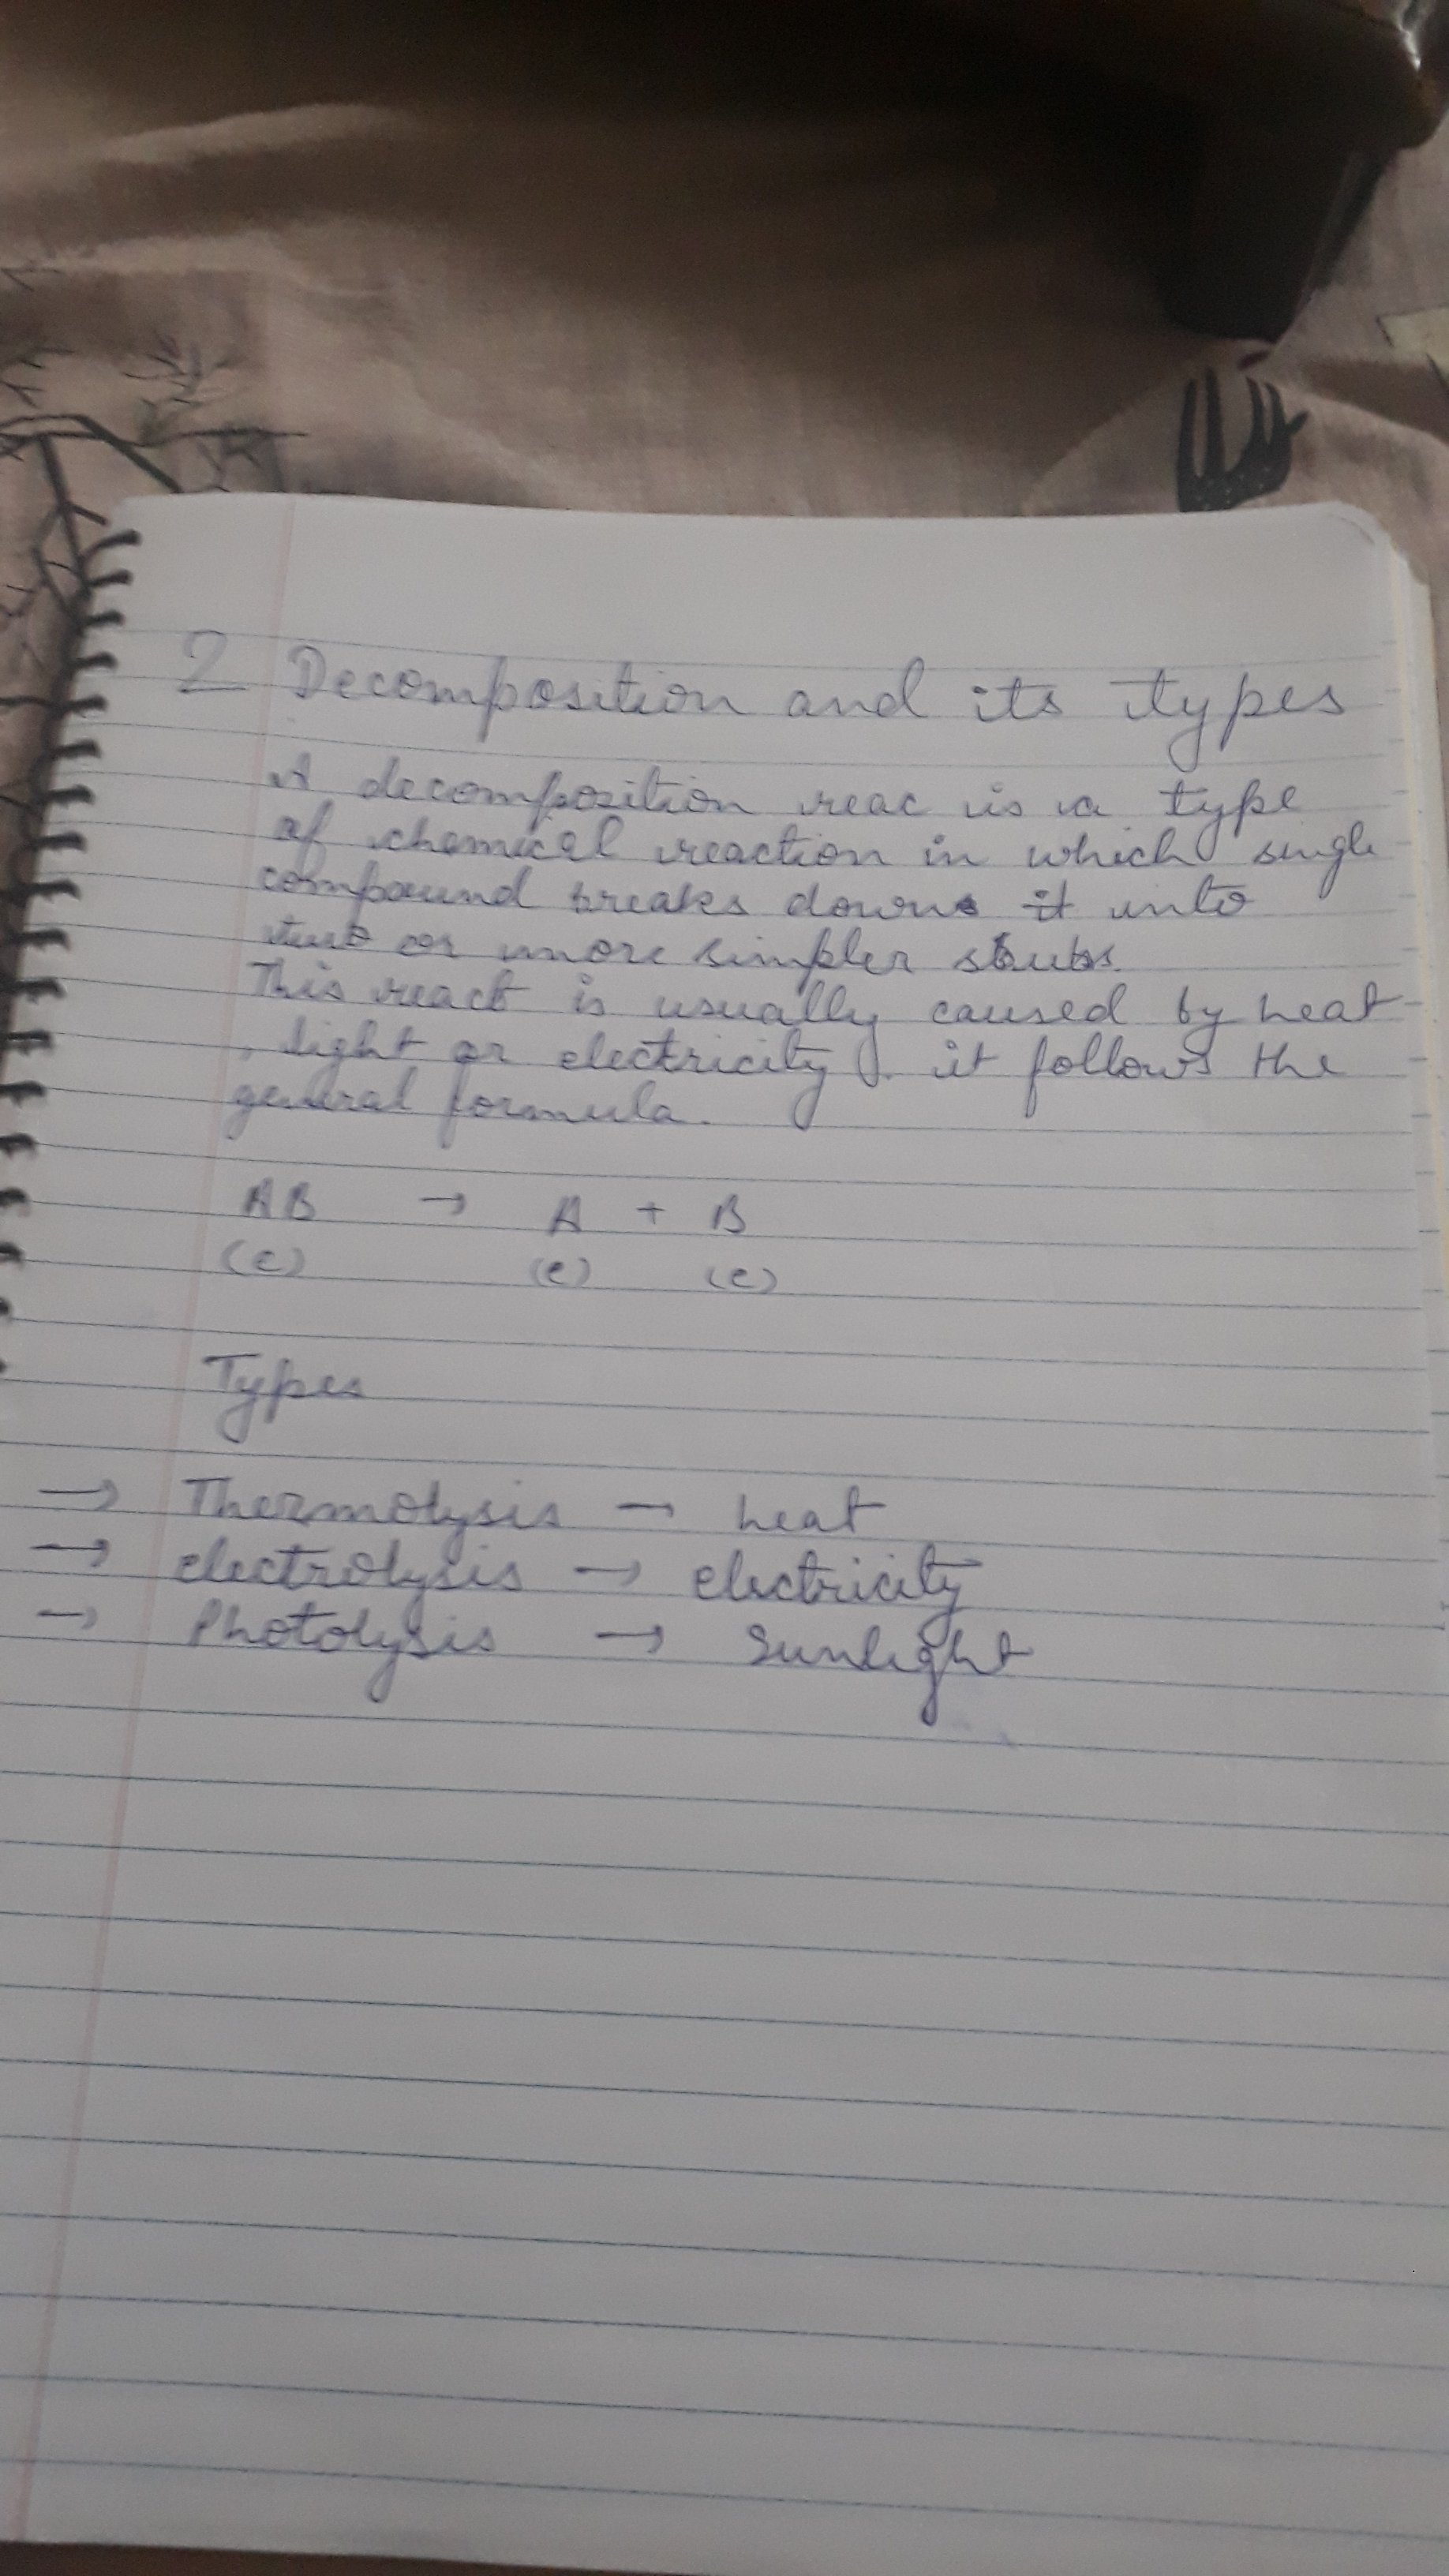 2 Decomposition and its types
A decomposition reac is a type
of chemical reaction in which single
compound breaks down it into
two or more simpler subs.
This react is usually caused by heat
, light or electricity. it follows the
general formula.
AB → A + B
(c) (e) (e)
Types
→ Thermolysis → heat
→ electrolysis → electricity
→ Photolysis → Sunlight